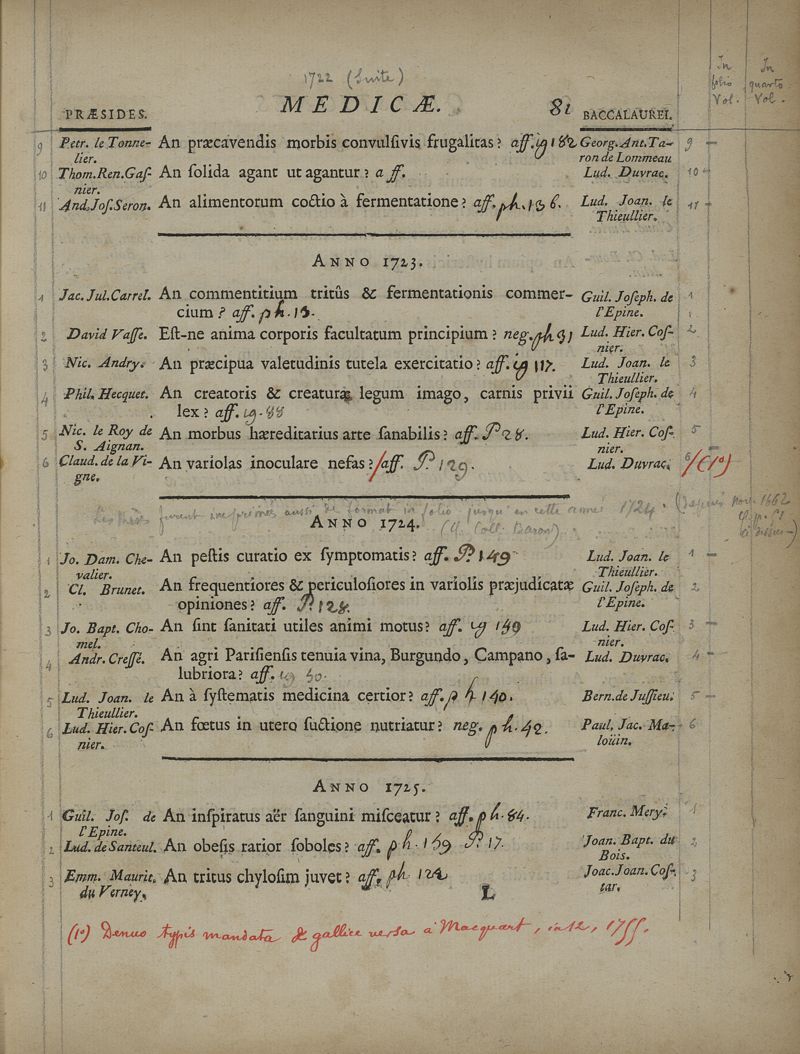 1722 (Suite)
In folio Vol. In quarto Vol.
PRÆSIDES. MEDICÆ. 81 BACCALAUREI.
9 Petr. le Tonne- An præcavendis morbis convulſivis frugalitas? aff. Georg. Ant. Ta- 9
lier. ron de Lommeau
10 Thom. Ren. Gaſ- An ſolida agant ut agantur? aff. Lud. Duvrac. 10
nier.
11 And. Joſ. Seron. An alimentorum coctio à fermentatione? aff. ph. Lud. Joan. le 11
Thieullier.
ANNO 1723.
1 Jac. Jul. Carrel. An commentitium tritûs & fermentationis commer- Guil. Joſeph. de 1
cium? aff. ph. l'Epine.
2 David Vaſſe. Eſt-ne anima corporis facultatum principium? neg. ph Lud. Hier. Coſ- 2
nier.
3 Nic. Andry. An præcipua valetudinis tutela exercitatio? aff. 117. Lud. Joan. le 3
Thieullier.
4 Phil. Hecquet. An creatoris & creaturæ legum imago, carnis privii Guil. Joſeph. de 4
lex? aff. 88 l'Epine.
5 Nic. le Roy de An morbus hæreditarius arte ſanabilis? aff. P. 28. Lud. Hier. Coſ- 5
S. Aignan. nier.
6 Claud. de la Vi- An variolas inoculare nefas? aff. P. 129. Lud. Duvrac. 6 (1º)
gne.
Les thèses furent imprimées aussi de format in folio jusqu'en cette année 1724. (Depuis
(Cf. Coll. Baron)
ANNO 1724.
1 Jo. Dam. Che- An peſtis curatio ex ſymptomatis? aff. P. 149 Lud. Joan. le 1
valier. Thieullier.
2 Cl. Brunet. An frequentiores & periculoſiores in variolis præjudicatæ Guil. Joſeph. de 2
opiniones? aff. P. 128. l'Epine.
3 Jo. Bapt. Cho- An ſint ſanitati utiles animi motus? aff. 149 Lud. Hier. Coſ- 3
mel. nier.
4 Andr. Creſſé. An agri Pariſienſis tenuia vina, Burgundo, Campano, ſa- Lud. Duvrac. 4
lubriora? aff.
5 Lud. Joan. le An à ſyſtematis medicina certior? aff. ph. 140. Bern. de Juſſieu. 5
Thieullier.
6 Lud. Hier. Coſ- An fœtus in utero ſuctione nutriatur? neg. ph. 42. Paul. Jac. Ma- 6
nier. loüin.
ANNO 1725.
1 Guil. Joſ. de An inſpiratus aër ſanguini miſceatur? aff. ph. 84. Franc. Mery. 1
l'Epine.
2 Lud. de Santeul. An obeſis rarior ſoboles? aff. ph. 149 P. 17. Joan. Bapt. du 2
Bois.
3 Emm. Mauric. An tritus chyloſim juvet? aff. ph. 124 Joac. Joan. Coſ- 3
du Verney. tar.
L
(1º) Denuo typis mandata & gallice versa a Macquart, in 12, 1755.